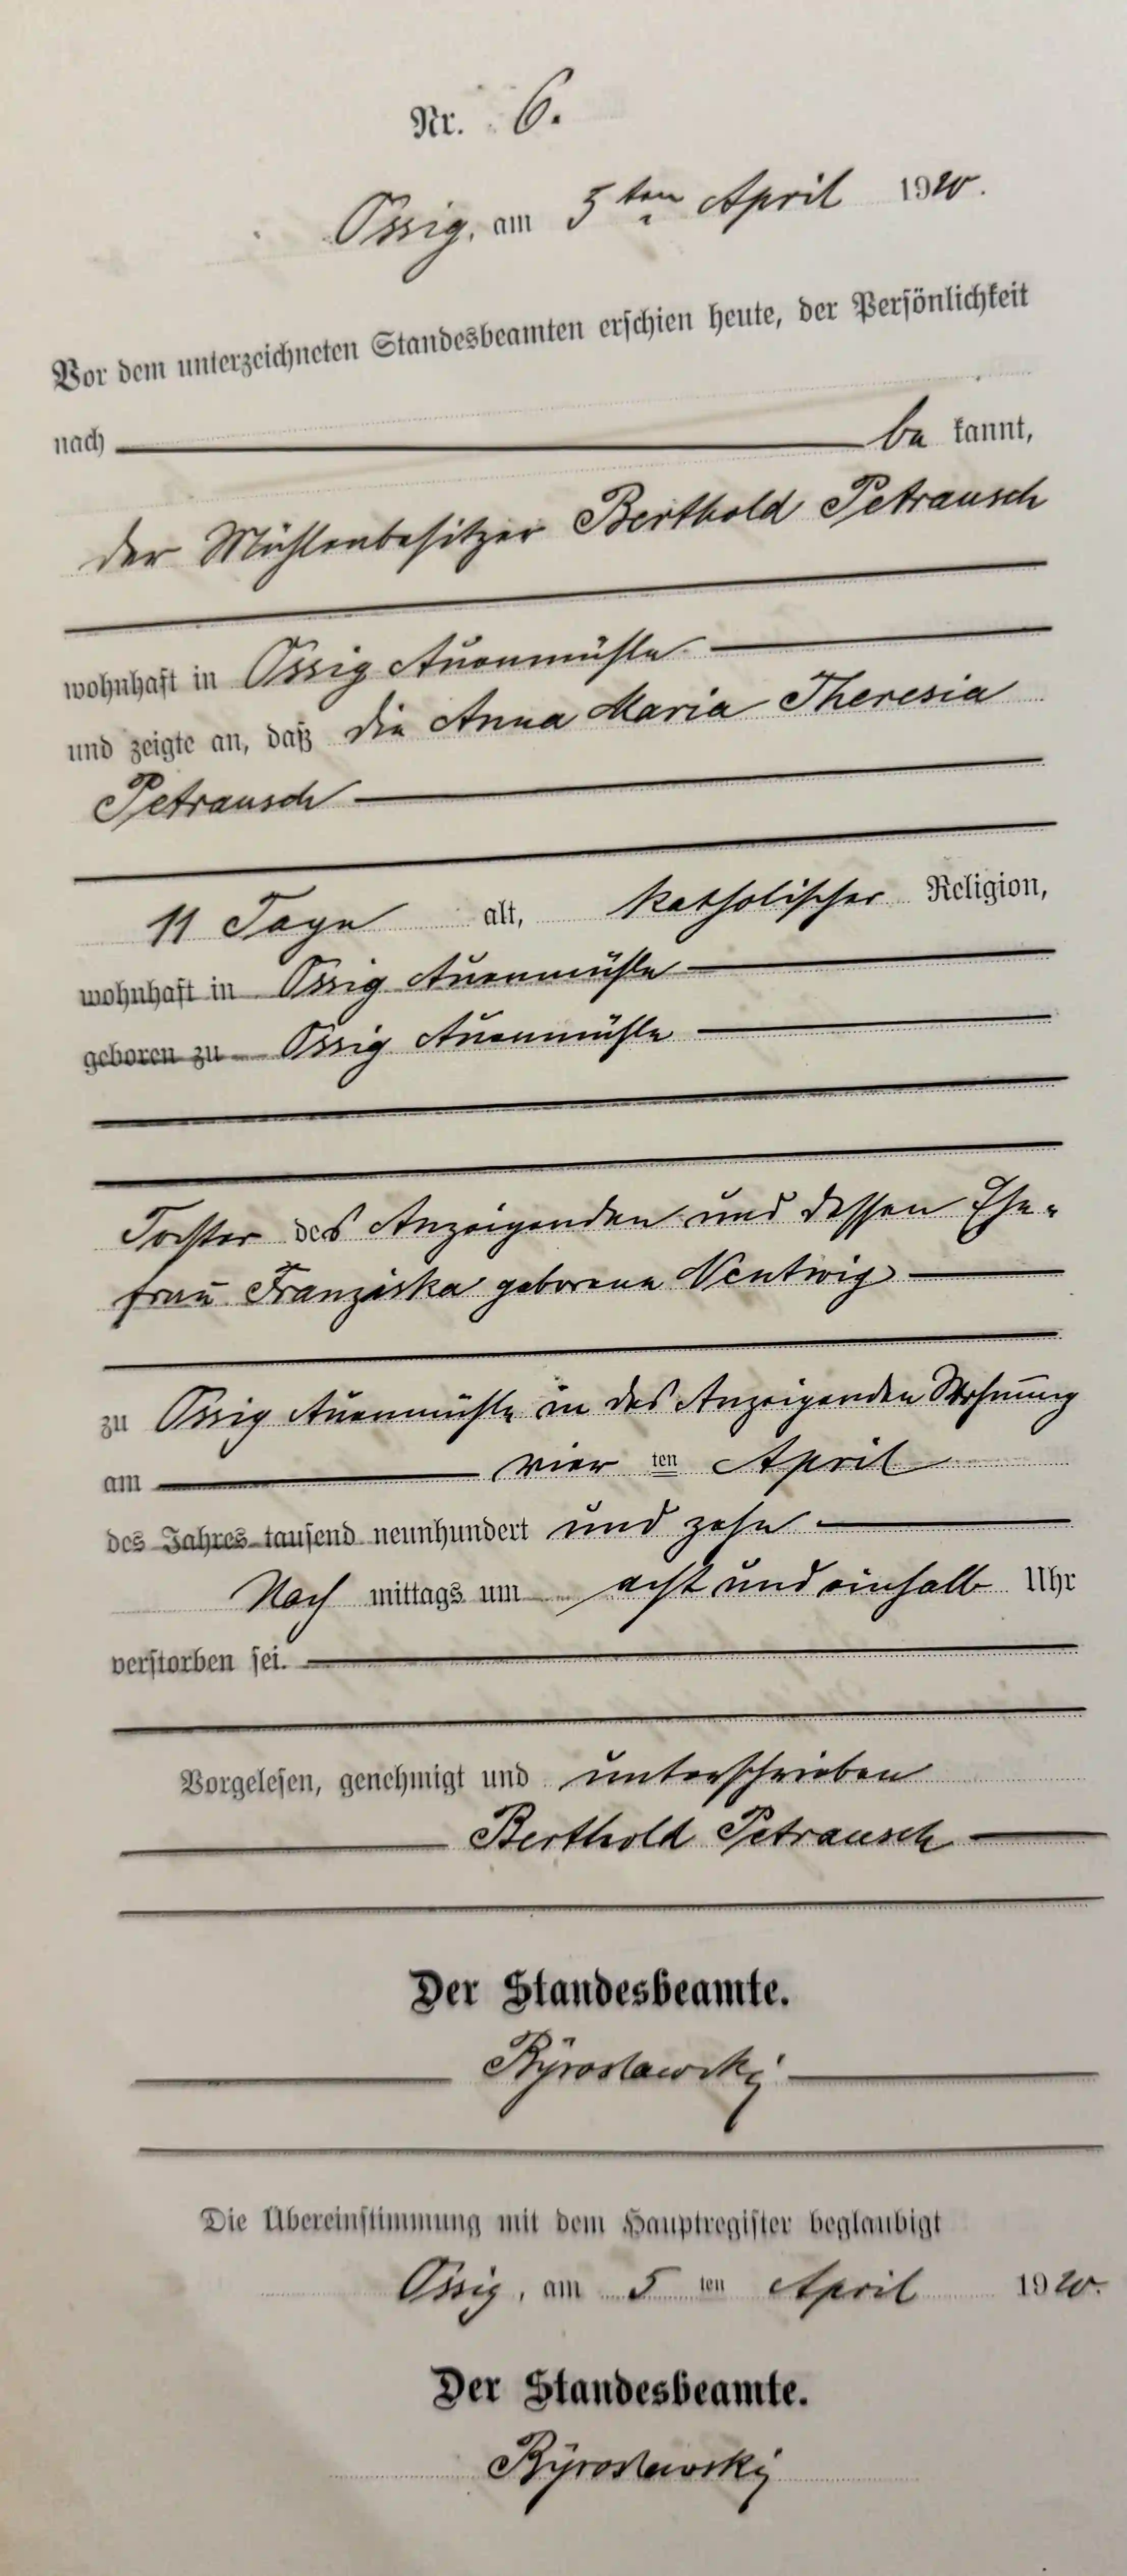 Nr. 6.
Ossig, am 5ten April 1910.
Vor dem unterzeichneten Standesbeamten erschien heute, der Persönlichkeit
nach be kannt,
der Mühlenbesitzer Berthold Petrausch
wohnhaft in Ossig Auenmühle
und zeigte an, daß die Anna Maria Theresia
Petrausch
11 Tage alt, katholischer Religion,
wohnhaft in Ossig Auenmühle
geboren zu Ossig Auenmühle
Tochter des Anzeigenden und dessen Ehe-
frau Franziska geborene Nentwig
zu Ossig Auenmühle in des Anzeigenden Wohnung
am vier ten April
des Jahres tausend neunhundert und zehn
Nach mittags um acht und einhalb Uhr
verstorben sei.
Vorgelesen, genehmigt und unterschrieben
Berthold Petrausch
Der Standesbeamte.
Byroslawski
Die Übereinstimmung mit dem Hauptregister beglaubigt
Ossig, am 5 ten April 1910.
Der Standesbeamte.
Byroslawski